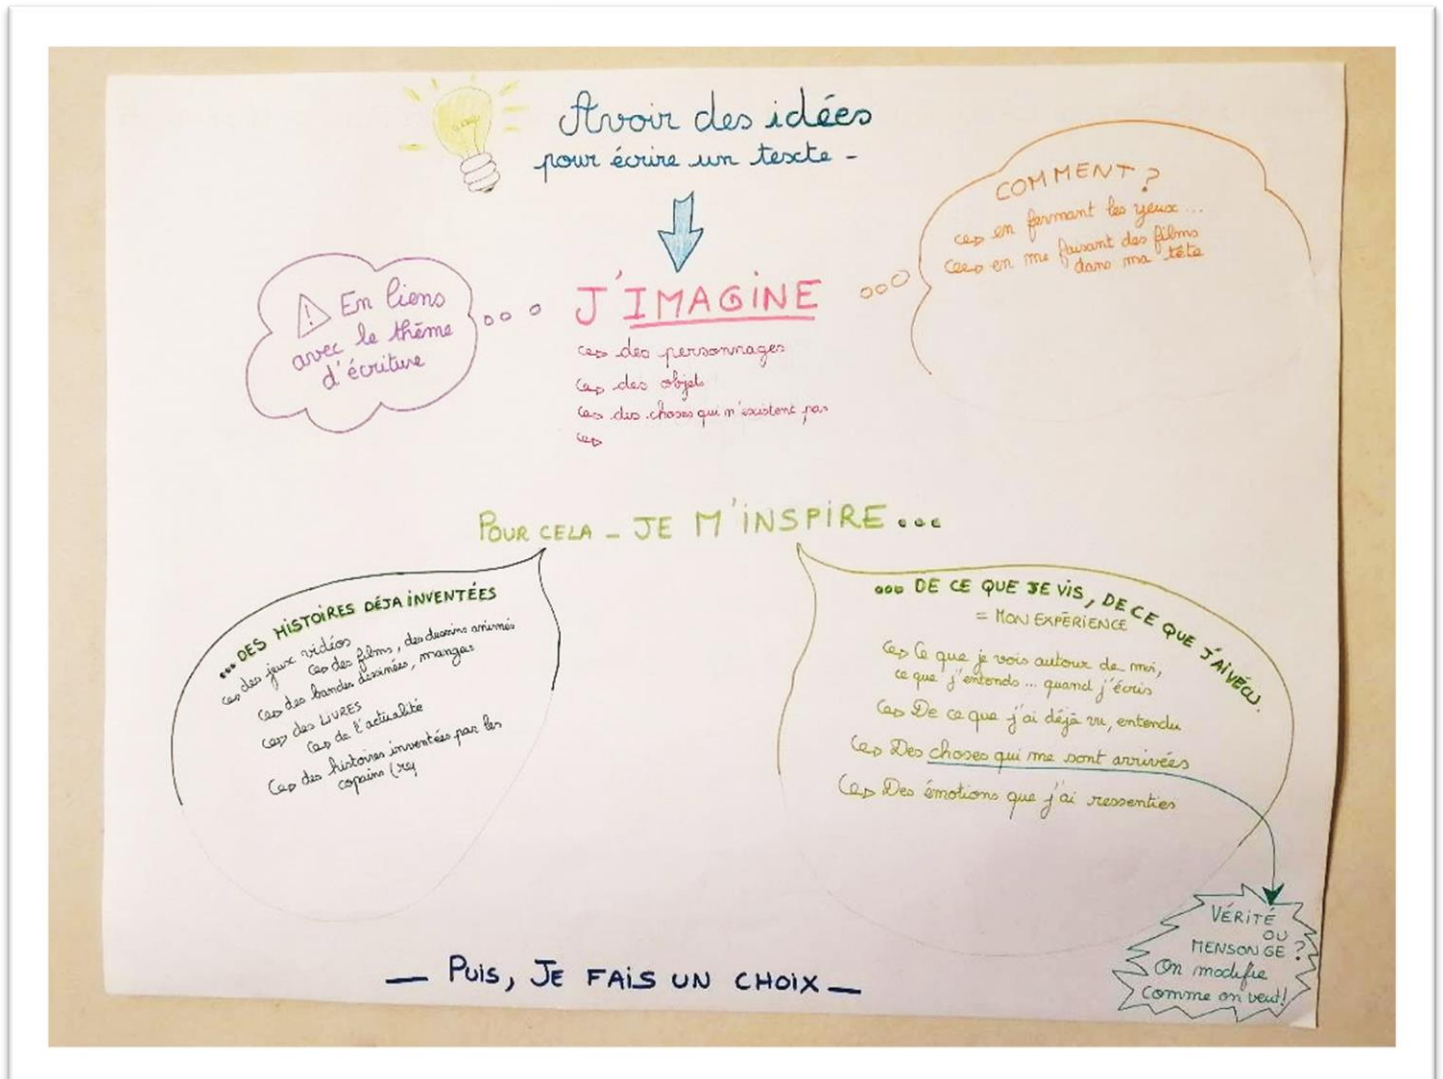 Avoir des idées
pour écrire un texte -
COMMENT ?
en fermant les yeux ...
en me faisant des films
dans ma tête
! En liens
avec le thème
d'écriture
J'IMAGINE
des personnages
des objets
des choses qui n'existent pas
POUR CELA - JE M'INSPIRE ...
... DES HISTOIRES DÉJA INVENTÉES
des jeux vidéos
des films, des dessins animés
des bandes dessinées, mangas
des LIVRES
de l'actualité
des histoires inventées par les
copains (
... DE CE QUE JE VIS, DE CE QUE J'AI VÉCU.
= MON EXPÉRIENCE
Ce que je vois autour de moi,
ce que j'entends ... quand j'écris
De ce que j'ai déjà vu, entendu
Des choses qui me sont arrivées
Des émotions que j'ai ressenties
VÉRITÉ
OU
MENSONGE ?
On modifie
comme on veut !
— PUIS, JE FAIS UN CHOIX —